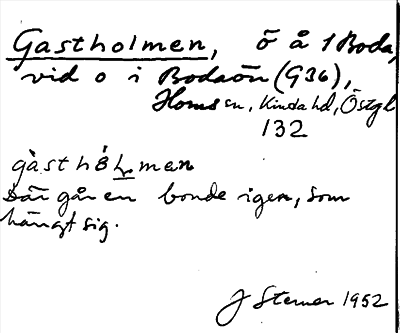 Gastholmen, ö å 1 Boda,
vid o i Bodaön (G36),
Horns sn, Kinda hd, Östgl
132
gàsthɷ́lmen
Där går en bonde igen, som
hängt sig.
J Sterner 1952